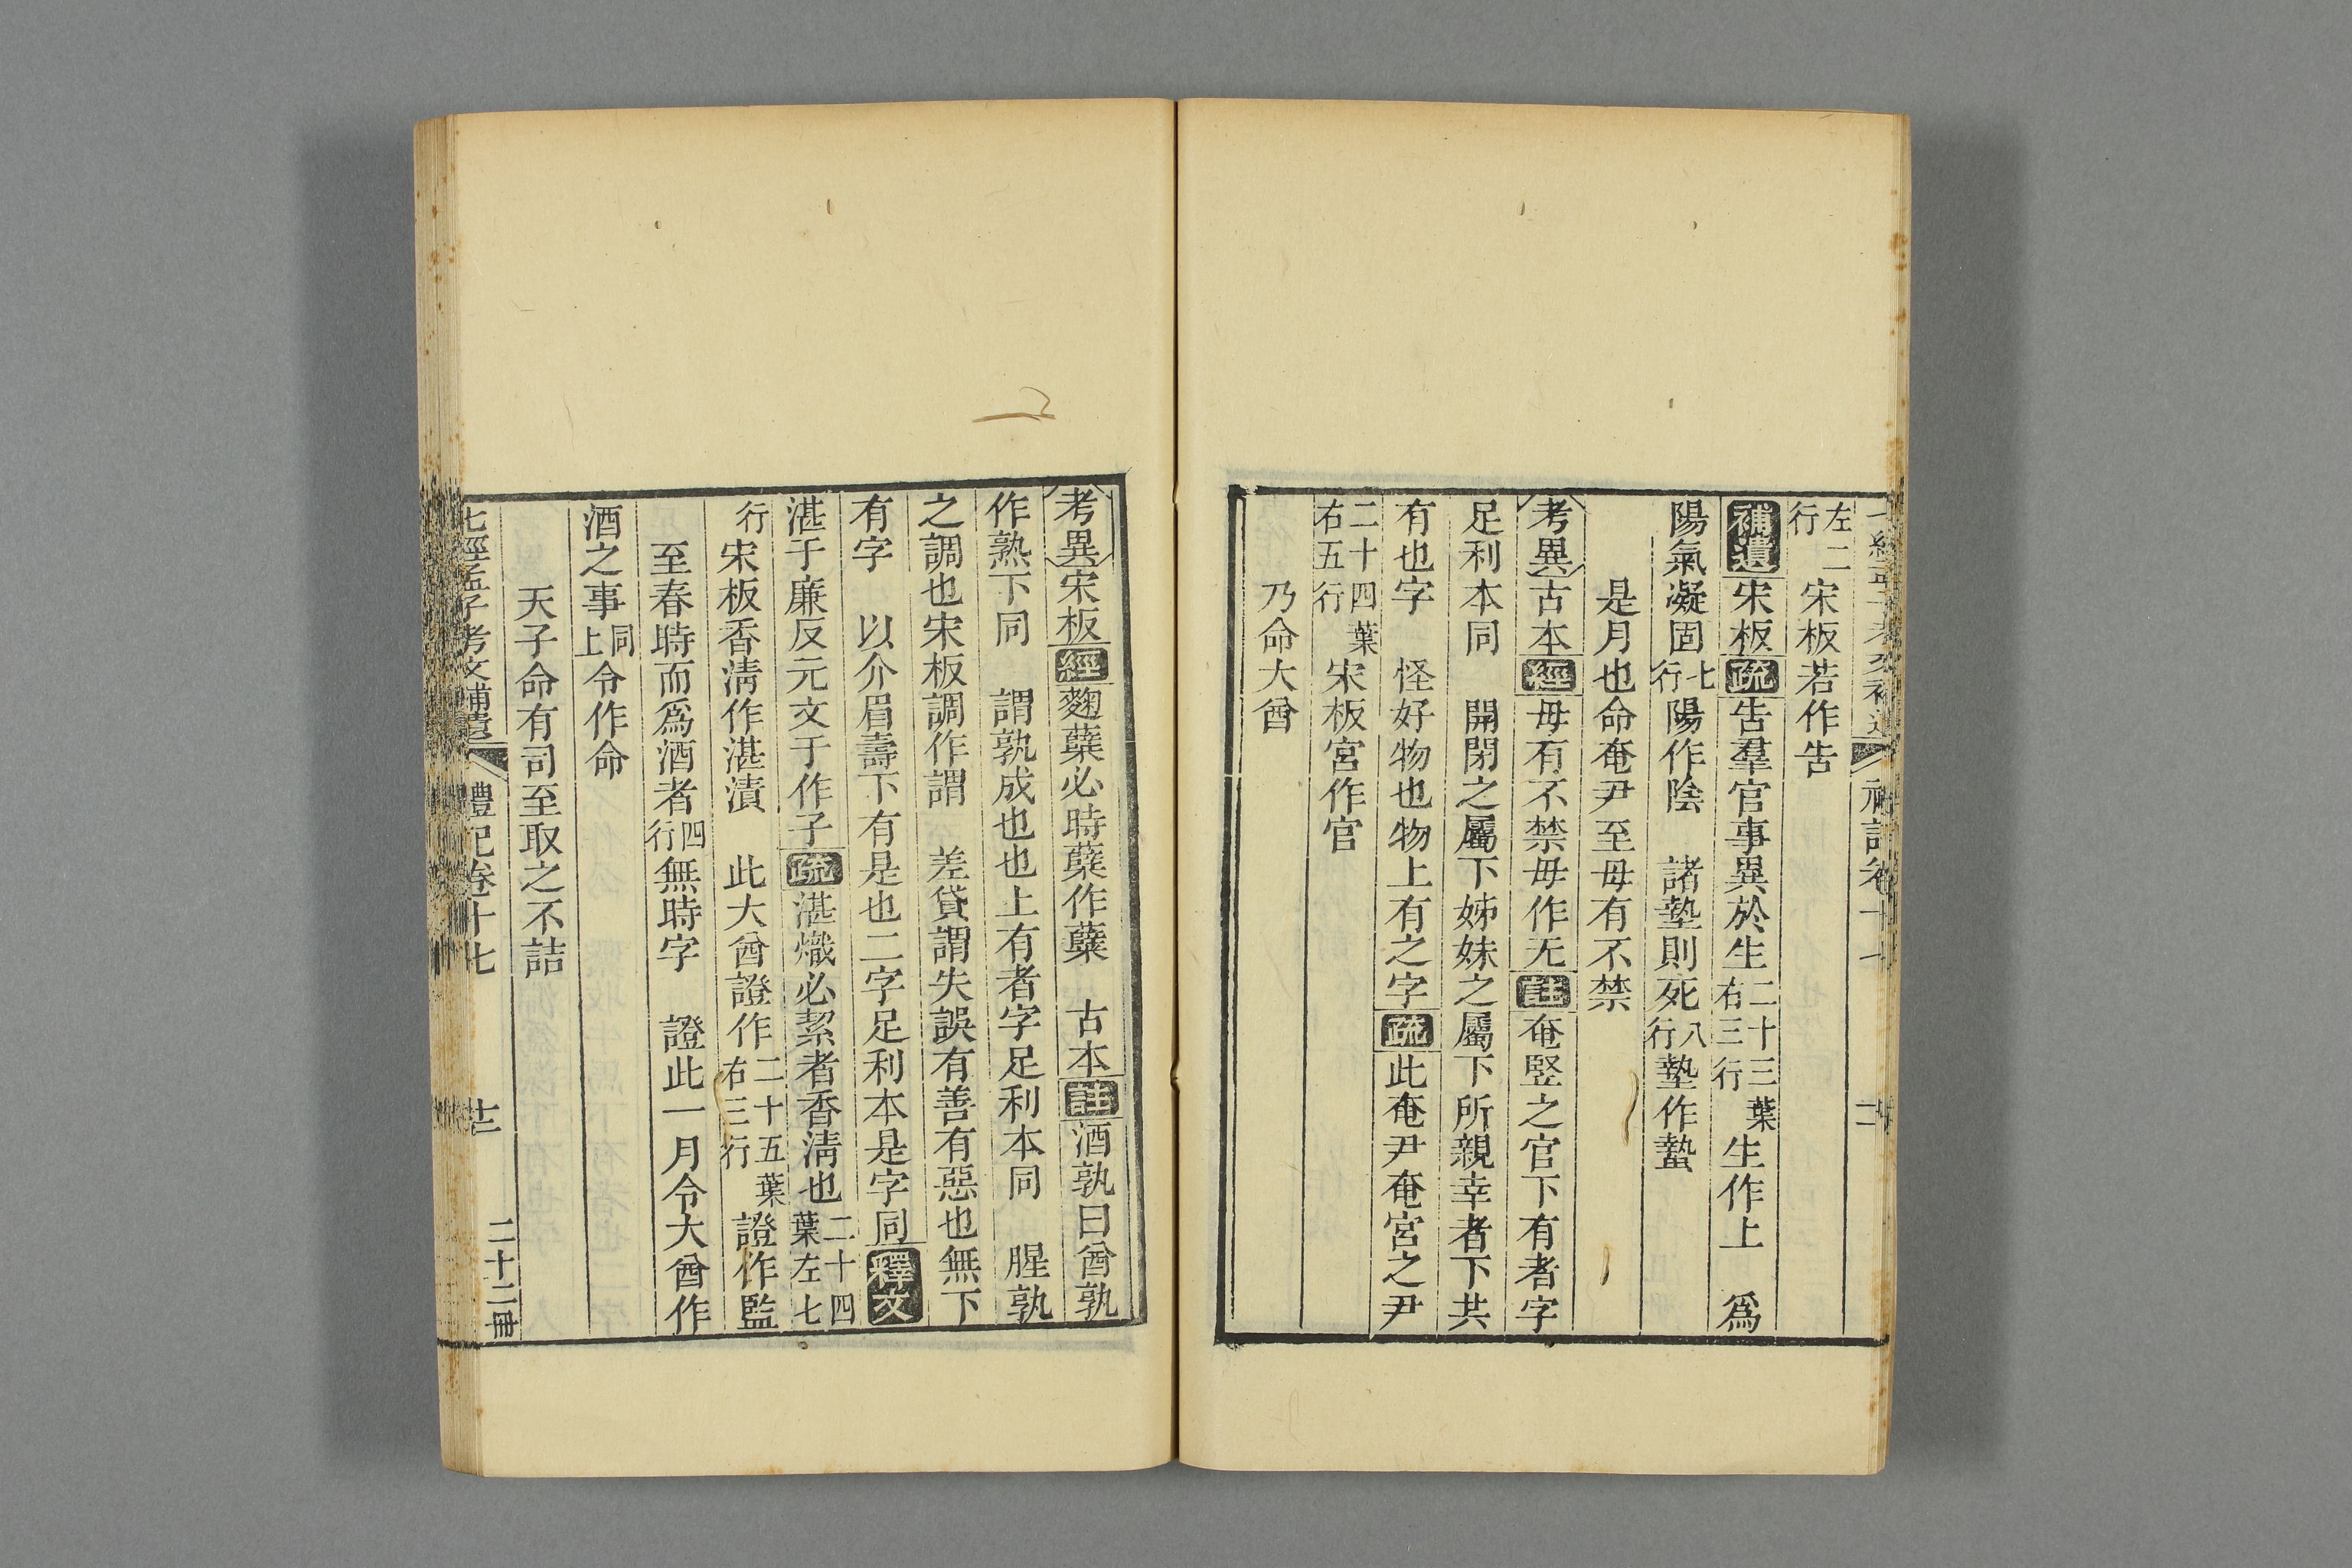 左二行宋板若作告
補遺宋板疏告羣官事異於生二十三葉右三行生作上　爲
陽氣凝固七行陽作陰　諸墊則死八行墊作蟄
是月也命奄尹至毋有不禁
考異古本經毋有不禁毋作无註奄竪之官下有者字
足利本同　開閉之屬下姊妹之屬下所親幸者下共
有也字　怪好物也物上有之字疏此奄尹奄宮之尹
二十四葉右五行宋板宮作官
乃命大酋
考異宋板經麴蘖必時蘖作糱　古本註酒孰曰酋孰
作熟下同　謂孰成也也上有者字足利本同　腥孰
之調也宋板調作謂　差貸謂失誤有善有惡也無下
有字　以介眉壽下有是也二字足利本是字同釋文
湛于廉反元文于作子疏湛熾必絜者香淸也二十四葉左七
行宋板香淸作湛漬　此大酋證作二十五葉右三行證作監
至春時而爲酒者四行無時字　證此一月令大酋作
酒之事同上令作命
天子命有司至取之不詰
七經孟子考文補遺　禮記卷十七　廿二　二十二冊